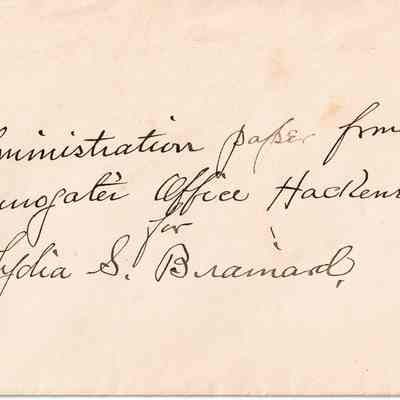 ministration paper from
rrogate's Office Hacken
for
Lydia S. Brainard,